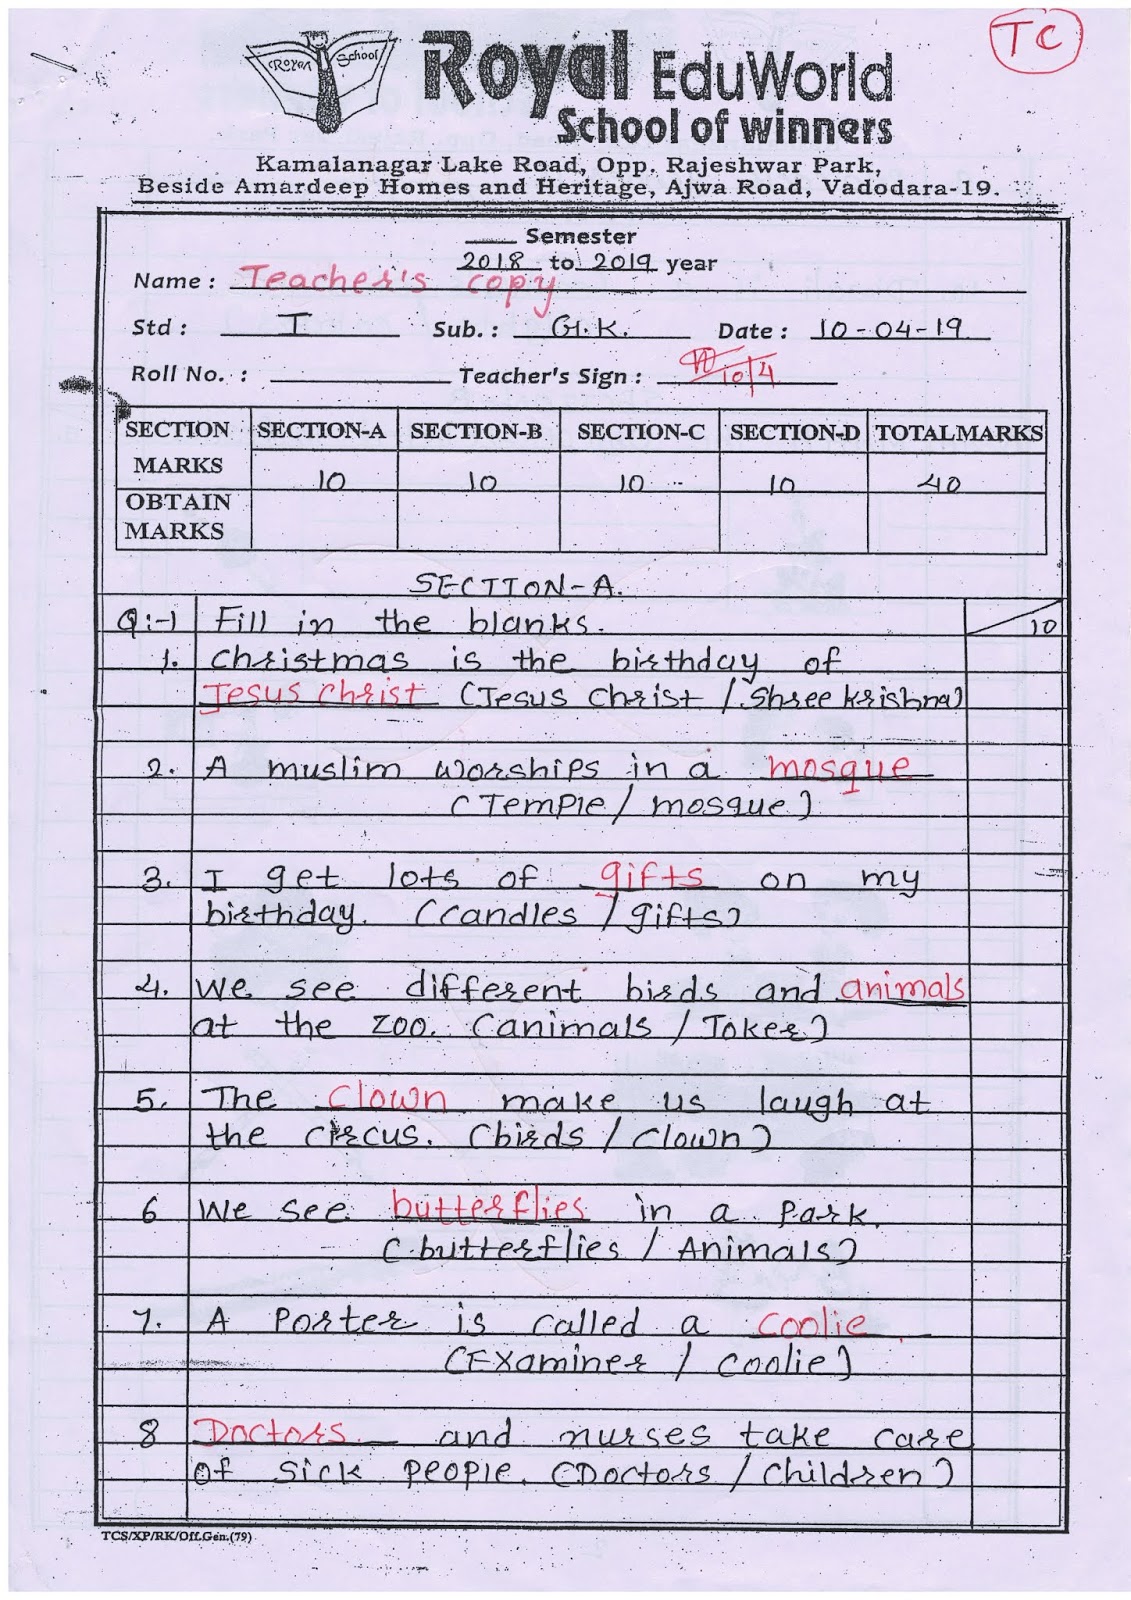 TC
Royal School
Royal EduWorld
School of winners
Kamalanagar Lake Road, Opp. Rajeshwar Park,
Beside Amardeep Homes and Heritage, Ajwa Road, Vadodara-19.
____ Semester
2018 to 2019 year
Name : Teacher's copy
Std : I Sub. : G.K. Date : 10-04-19
Roll No. : Teacher's Sign : 10/4
SECTION SECTION-A SECTION-B SECTION-C SECTION-D TOTALMARKS
MARKS 10 10 10 10 40
OBTAIN
MARKS
SECTION-A.
Q:-1 Fill in the blanks. 10
1. Christmas is the birthday of
Jesus Christ (Jesus Christ / Shree krishna)
2. A muslim worships in a mosque
(Temple / mosque)
3. I get lots of gifts on my
birthday. (candles / gifts)
4. We see different birds and animals
at the zoo. (animals / Joker)
5. The clown make us laugh at
the circus. (birds / clown)
6 We see butterflies in a park.
(butterflies / Animals)
7. A Porter is called a coolie
(Examiner / coolie)
8 Doctors and nurses take care
of sick people. (Doctors / children)
TCS/XP/RK/Off.Gen.(79)